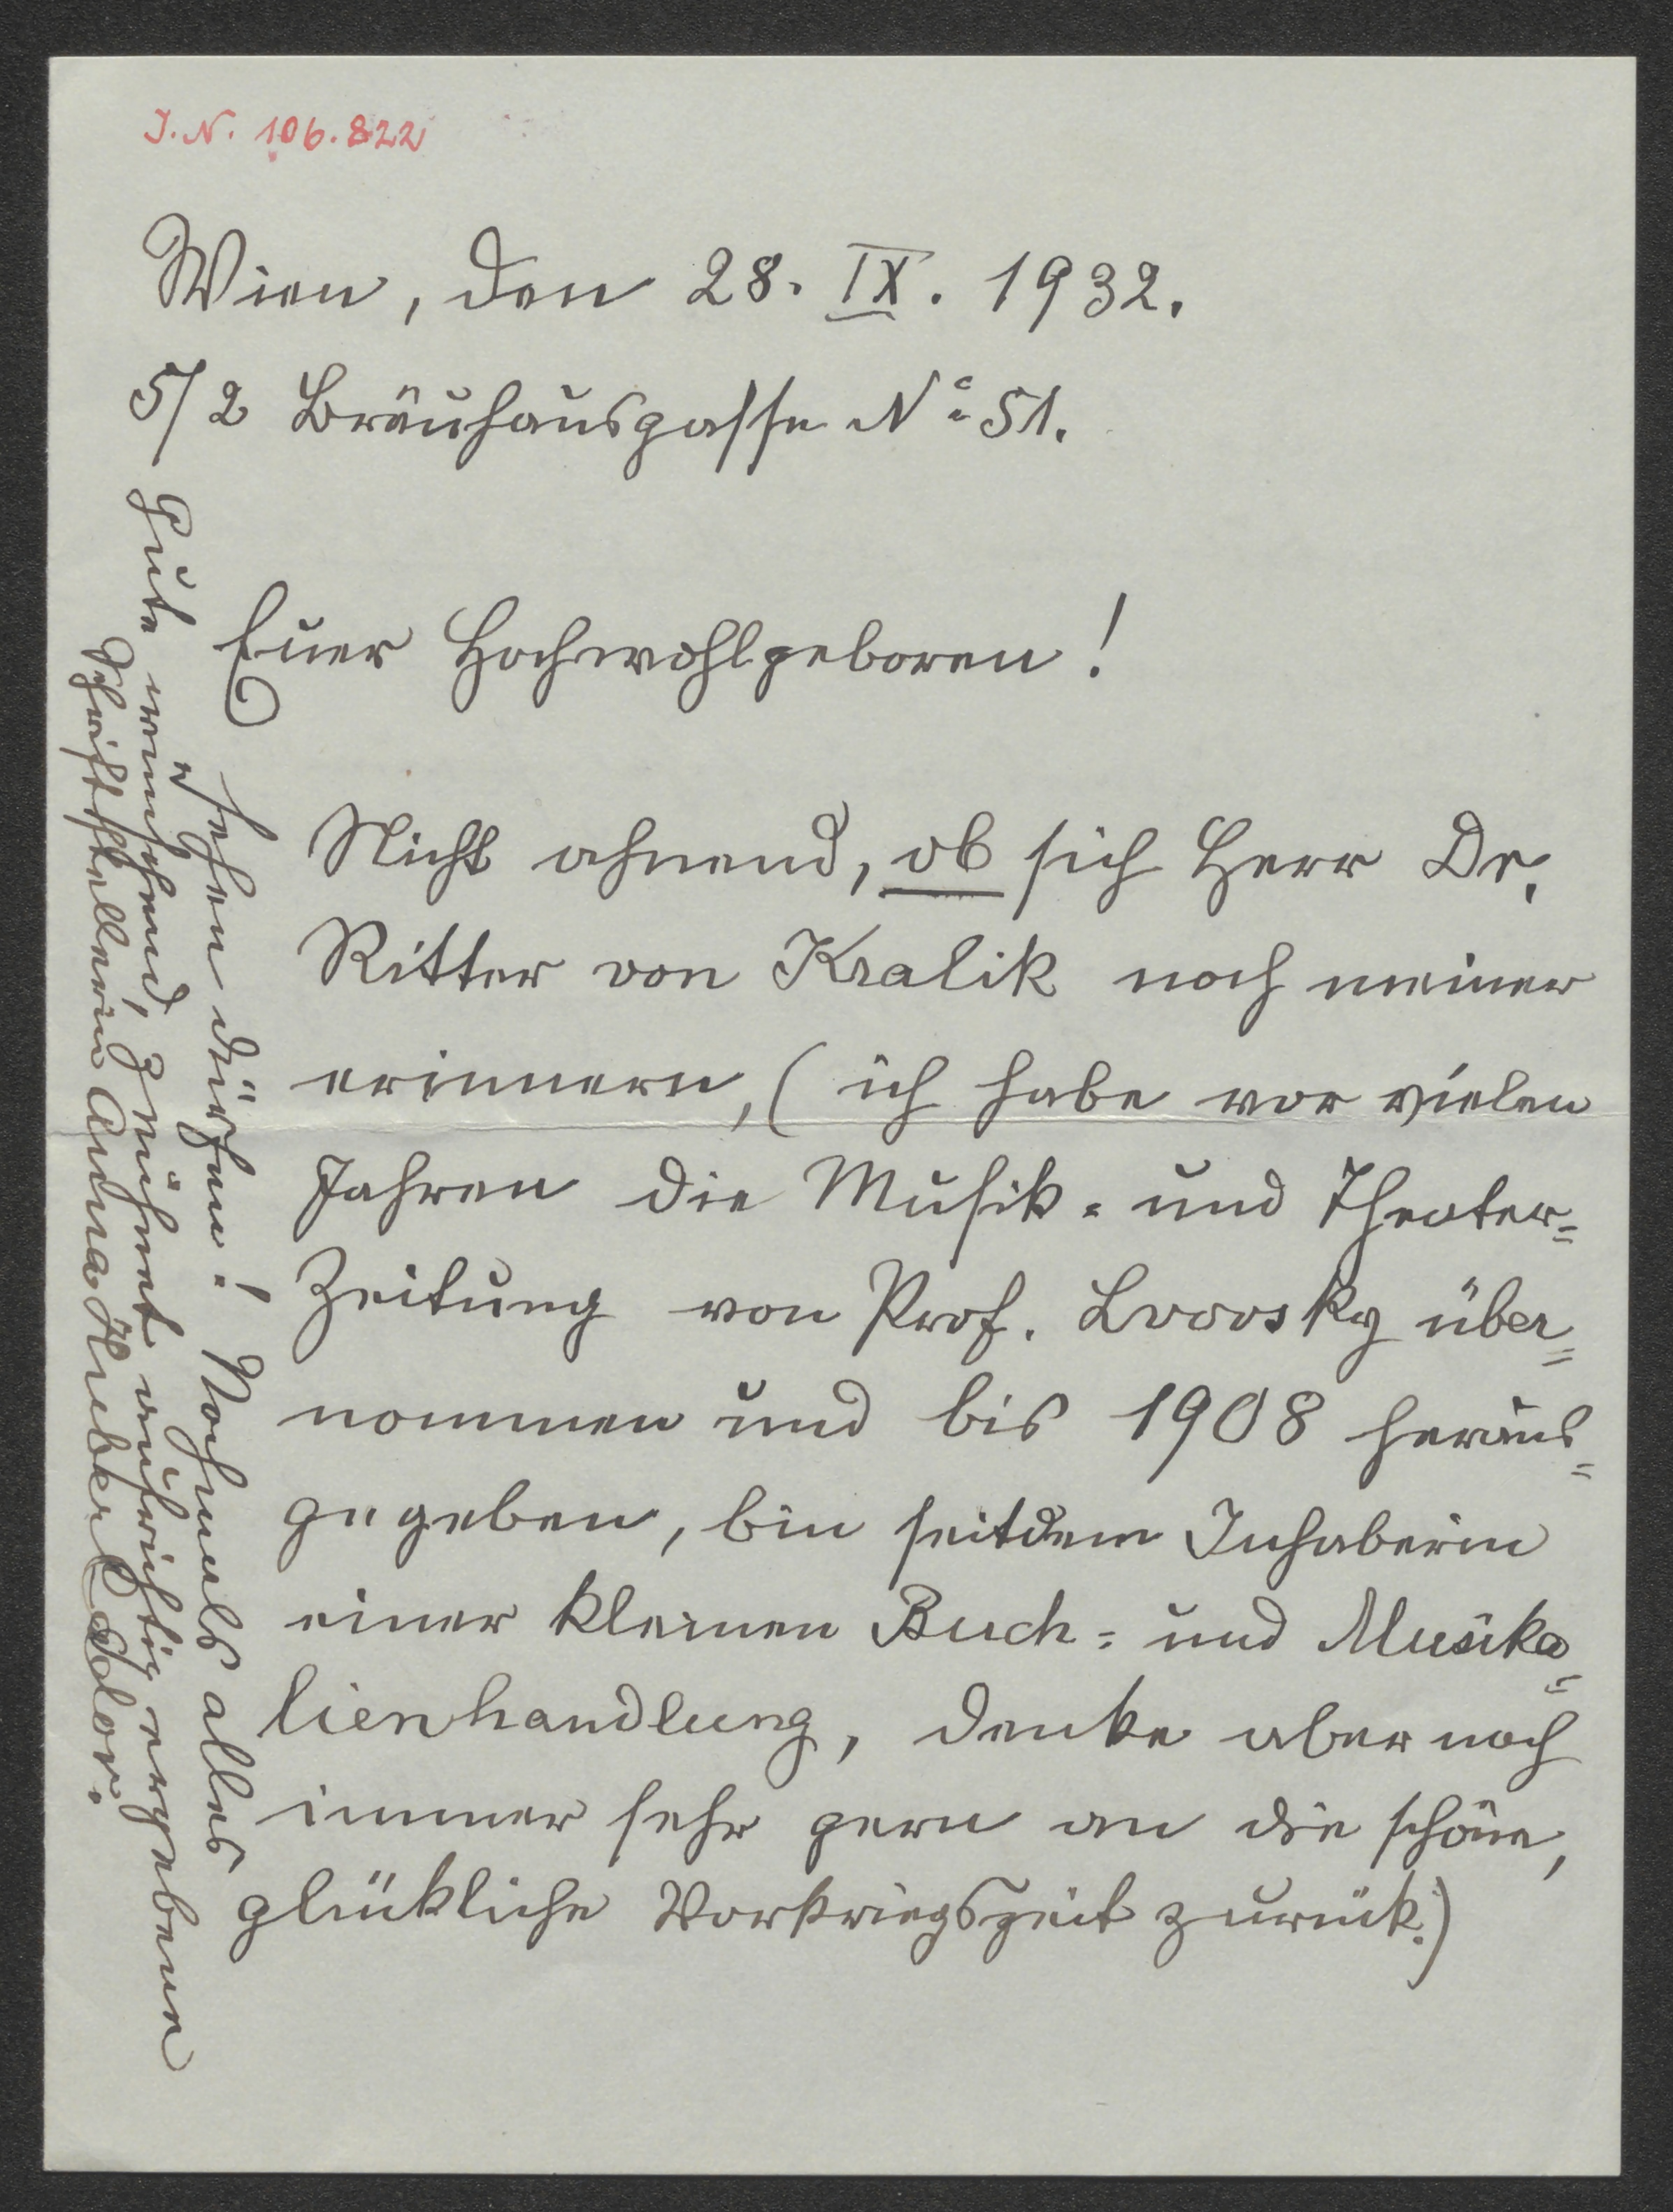 J.N. 106.822
Wien, den 28. IX. 1932.
5/2 Bräuhausgasse No 51.
Euer Hochwohlgeboren!
Nicht ahnend, ob sich Herr Dr.
Ritter von Kralik noch meiner
erinnern, (ich habe vor vielen
Jahren die Musik- und Theater=
Zeitung von Prof. Lvovsky über=
nommen und bis 1908 heraus=
gegeben, bin seitdem Inhaberin
einer kleinen Buch- und Musika=
lienhandlung, denke aber noch
immer sehr gern an die schöne,
glückliche Vorkriegszeit zurück.)
sehen dürfen! Nochmals alles
Gute wünschend, zeichnet aufrichtig ergebenn
Schriftstellerin Anna Huber